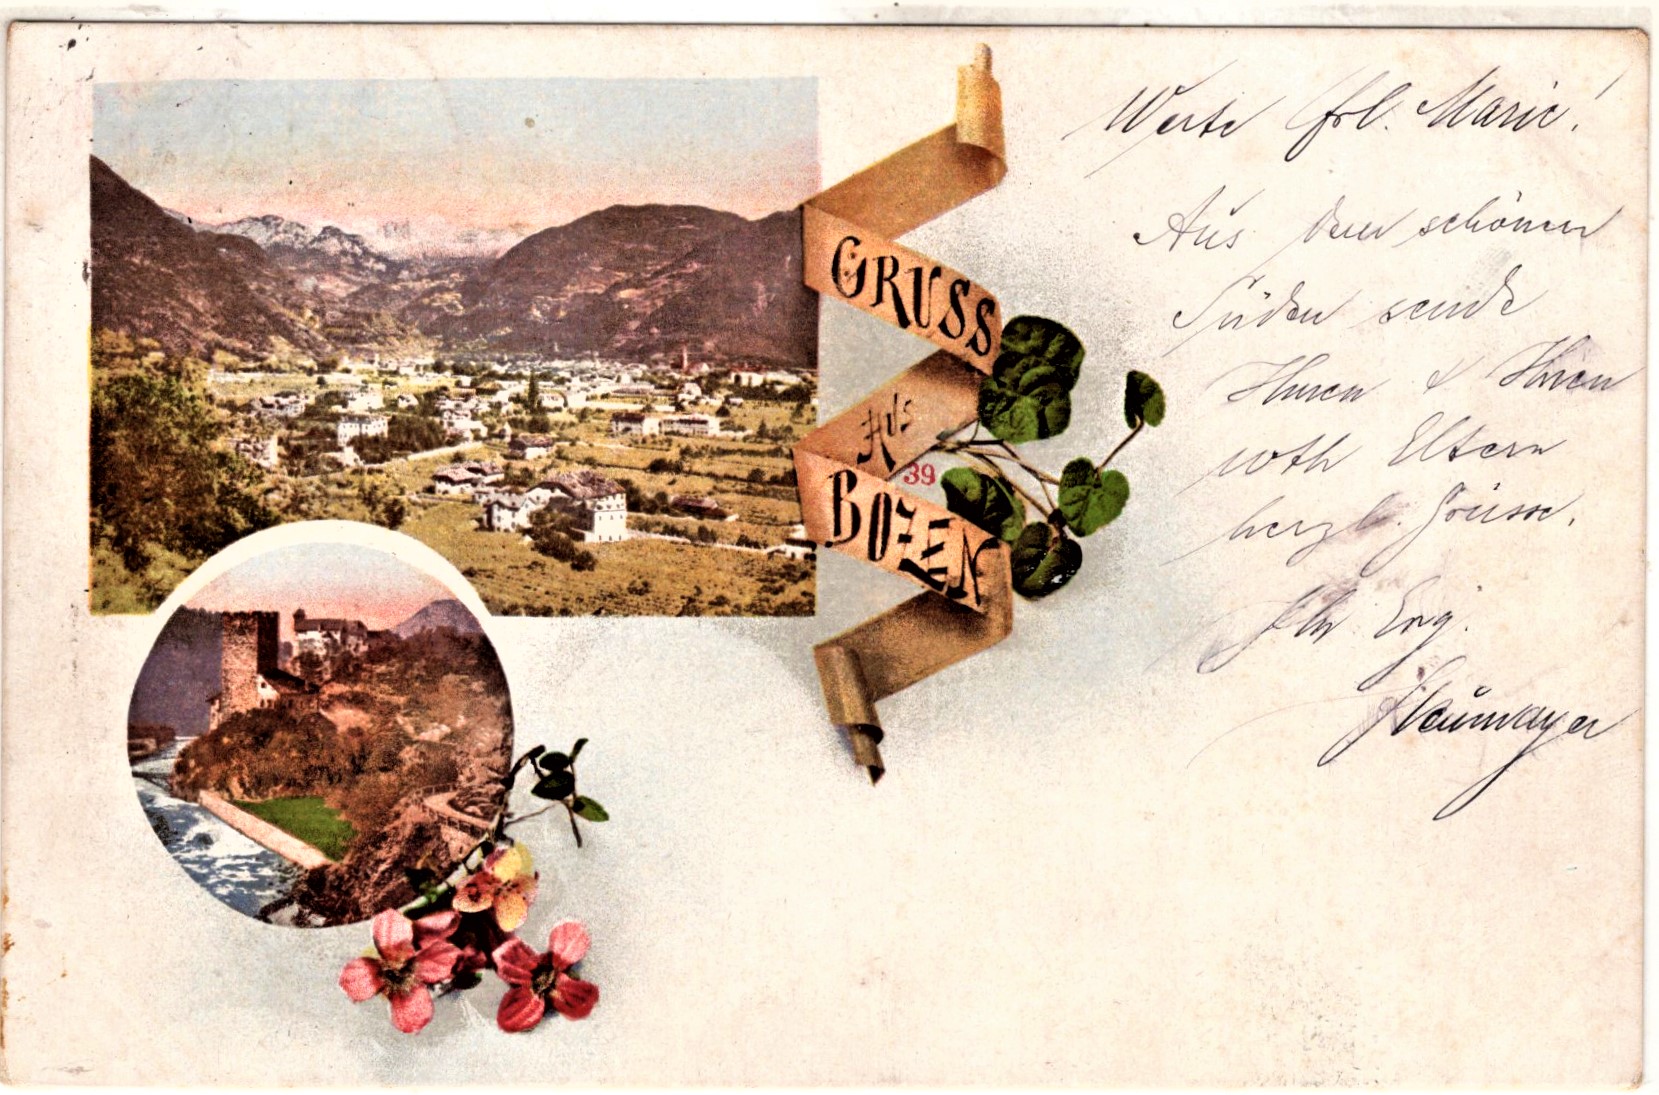 GRUSS
AUS
39
BOZEN
Werte Frl. Marie!
Aus dem schönen
Süden sende
Ihnen & Ihren
wth Eltern
herzl. Grüsse.
Ihr Erg.
Neumayer